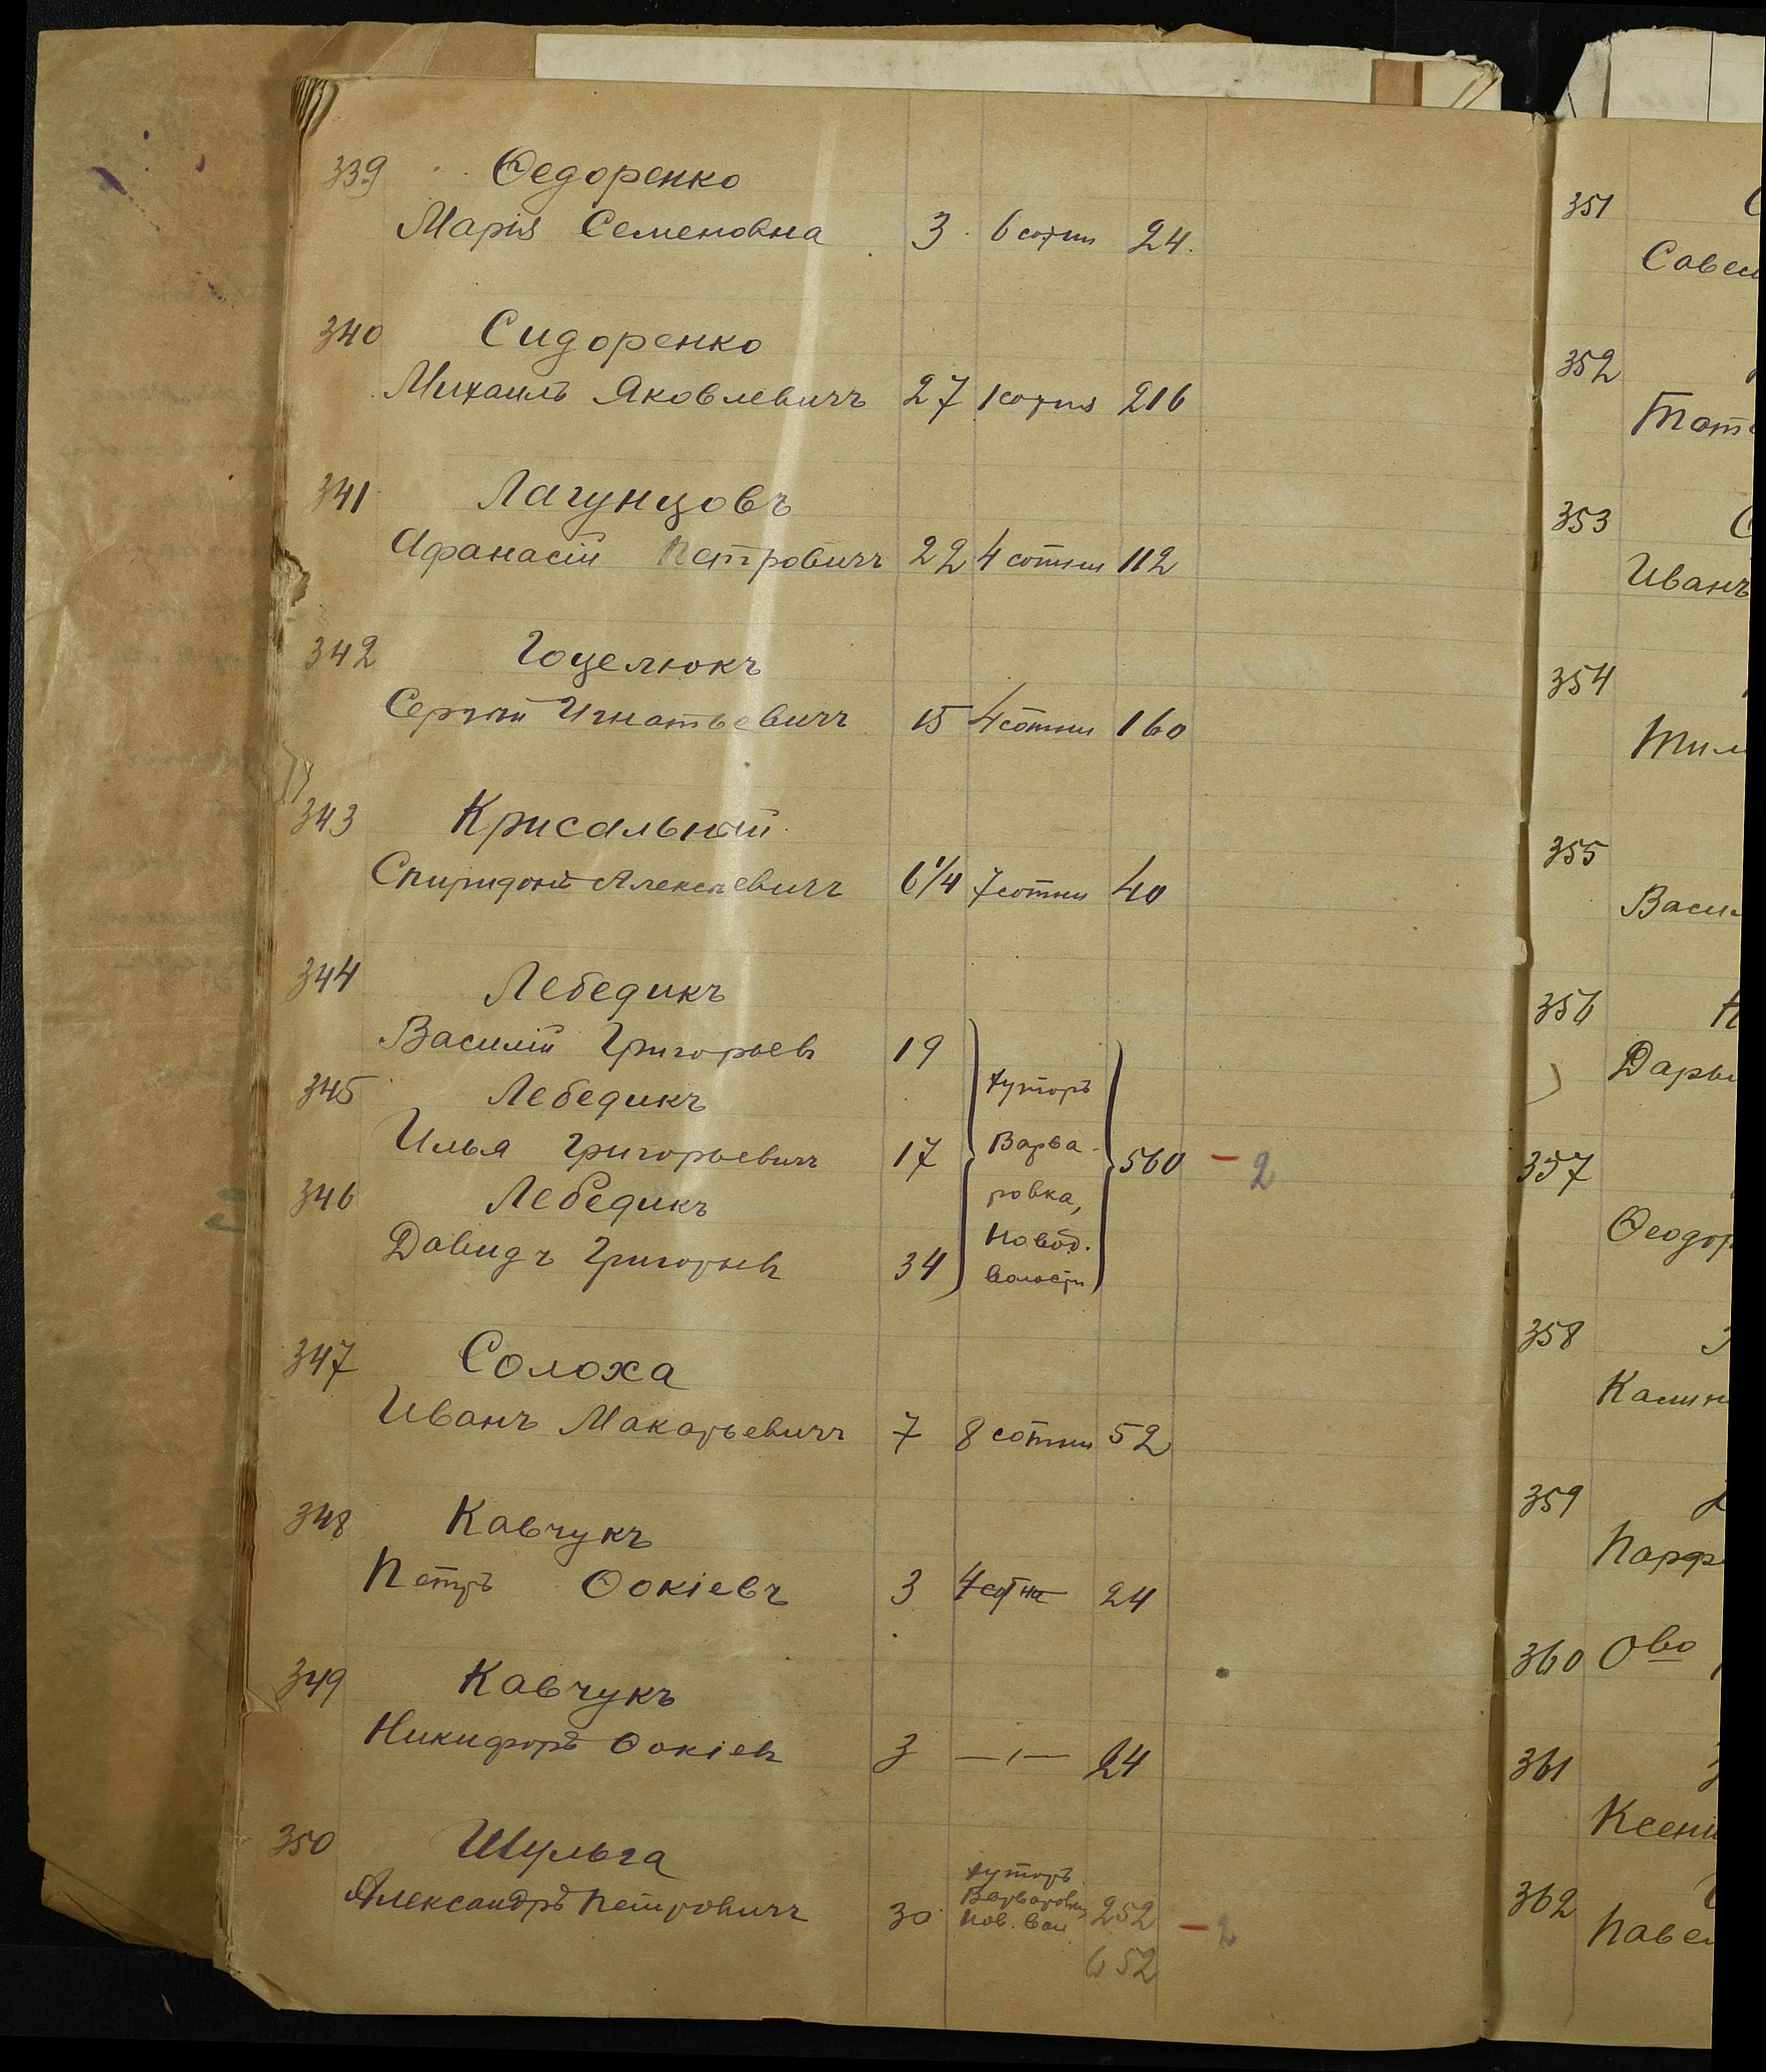 339 Ѳедоренко
Марія Семеновна 3 6 сотни 24.
340 Сидоренко
Михаилъ Яковлевичъ 27 1 сотня 216
341 Лагунцовъ
Афанасій Петровичъ 22 4 сотни 112
342 Гоцелюкъ
Сергій Игнатьевичъ 15 4 сотни 160
343 Крисальный
Спиридонъ Алексѣевичъ 6 1/4 7 сотни 40
344 Лебедикъ
Василій Григорьев 19
345 Лебедикъ
хуторъ
Илья Григорьевичъ 17 Варва-
560 — 2
346 Лебедикъ
ровка,
Давидъ Григорьев 34
Новод.
волости
347 Солоха
Иванъ Макарьевичъ 7 8 сотни 52
348 Кавчукъ
Петръ Ѳокіевъ 3 4 сотня 24
349 Кавчукъ
Никифоръ Ѳокіев 3 —ı— 24
350 Шульга
хуторъ
Александръ Петровичъ 30 252 — 2
Нов. вол.
652
351
Савел
352
353
Иванъ
354
355
Васи
356
Дарь
357
Ѳеодор
358
Калин
359
Парф
360 Ово
361
Ксені
362
Павел